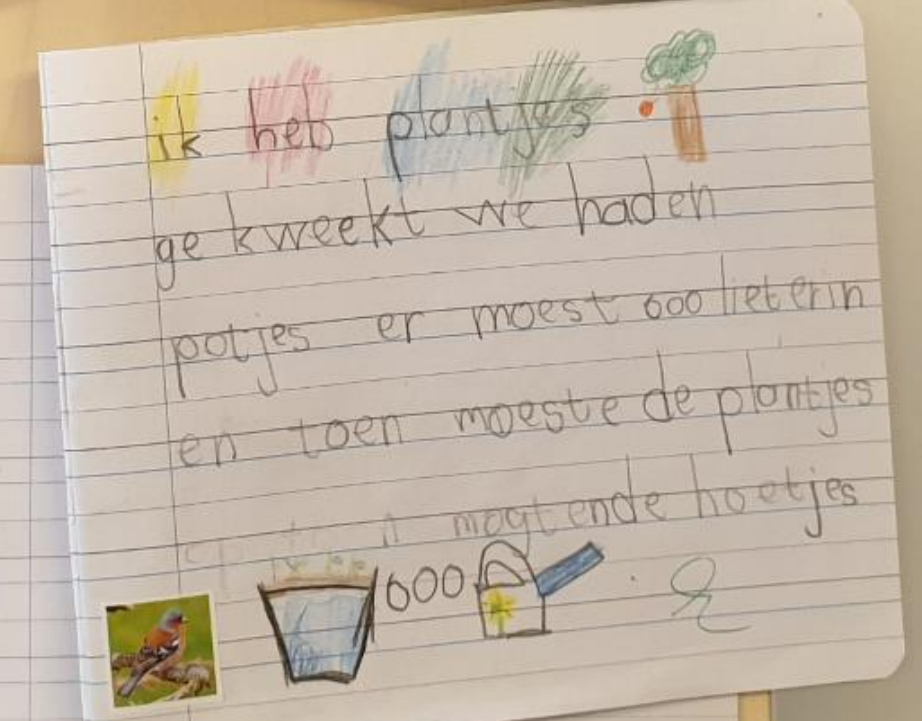 ik heb plantjes.
ge kweekt we haden
potjes er moest 600 lieterin
en toen moeste de plantjes
mogt ende hoetjes
600